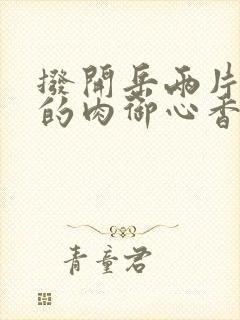 撥開岳兩片
的肉御心香
青童君